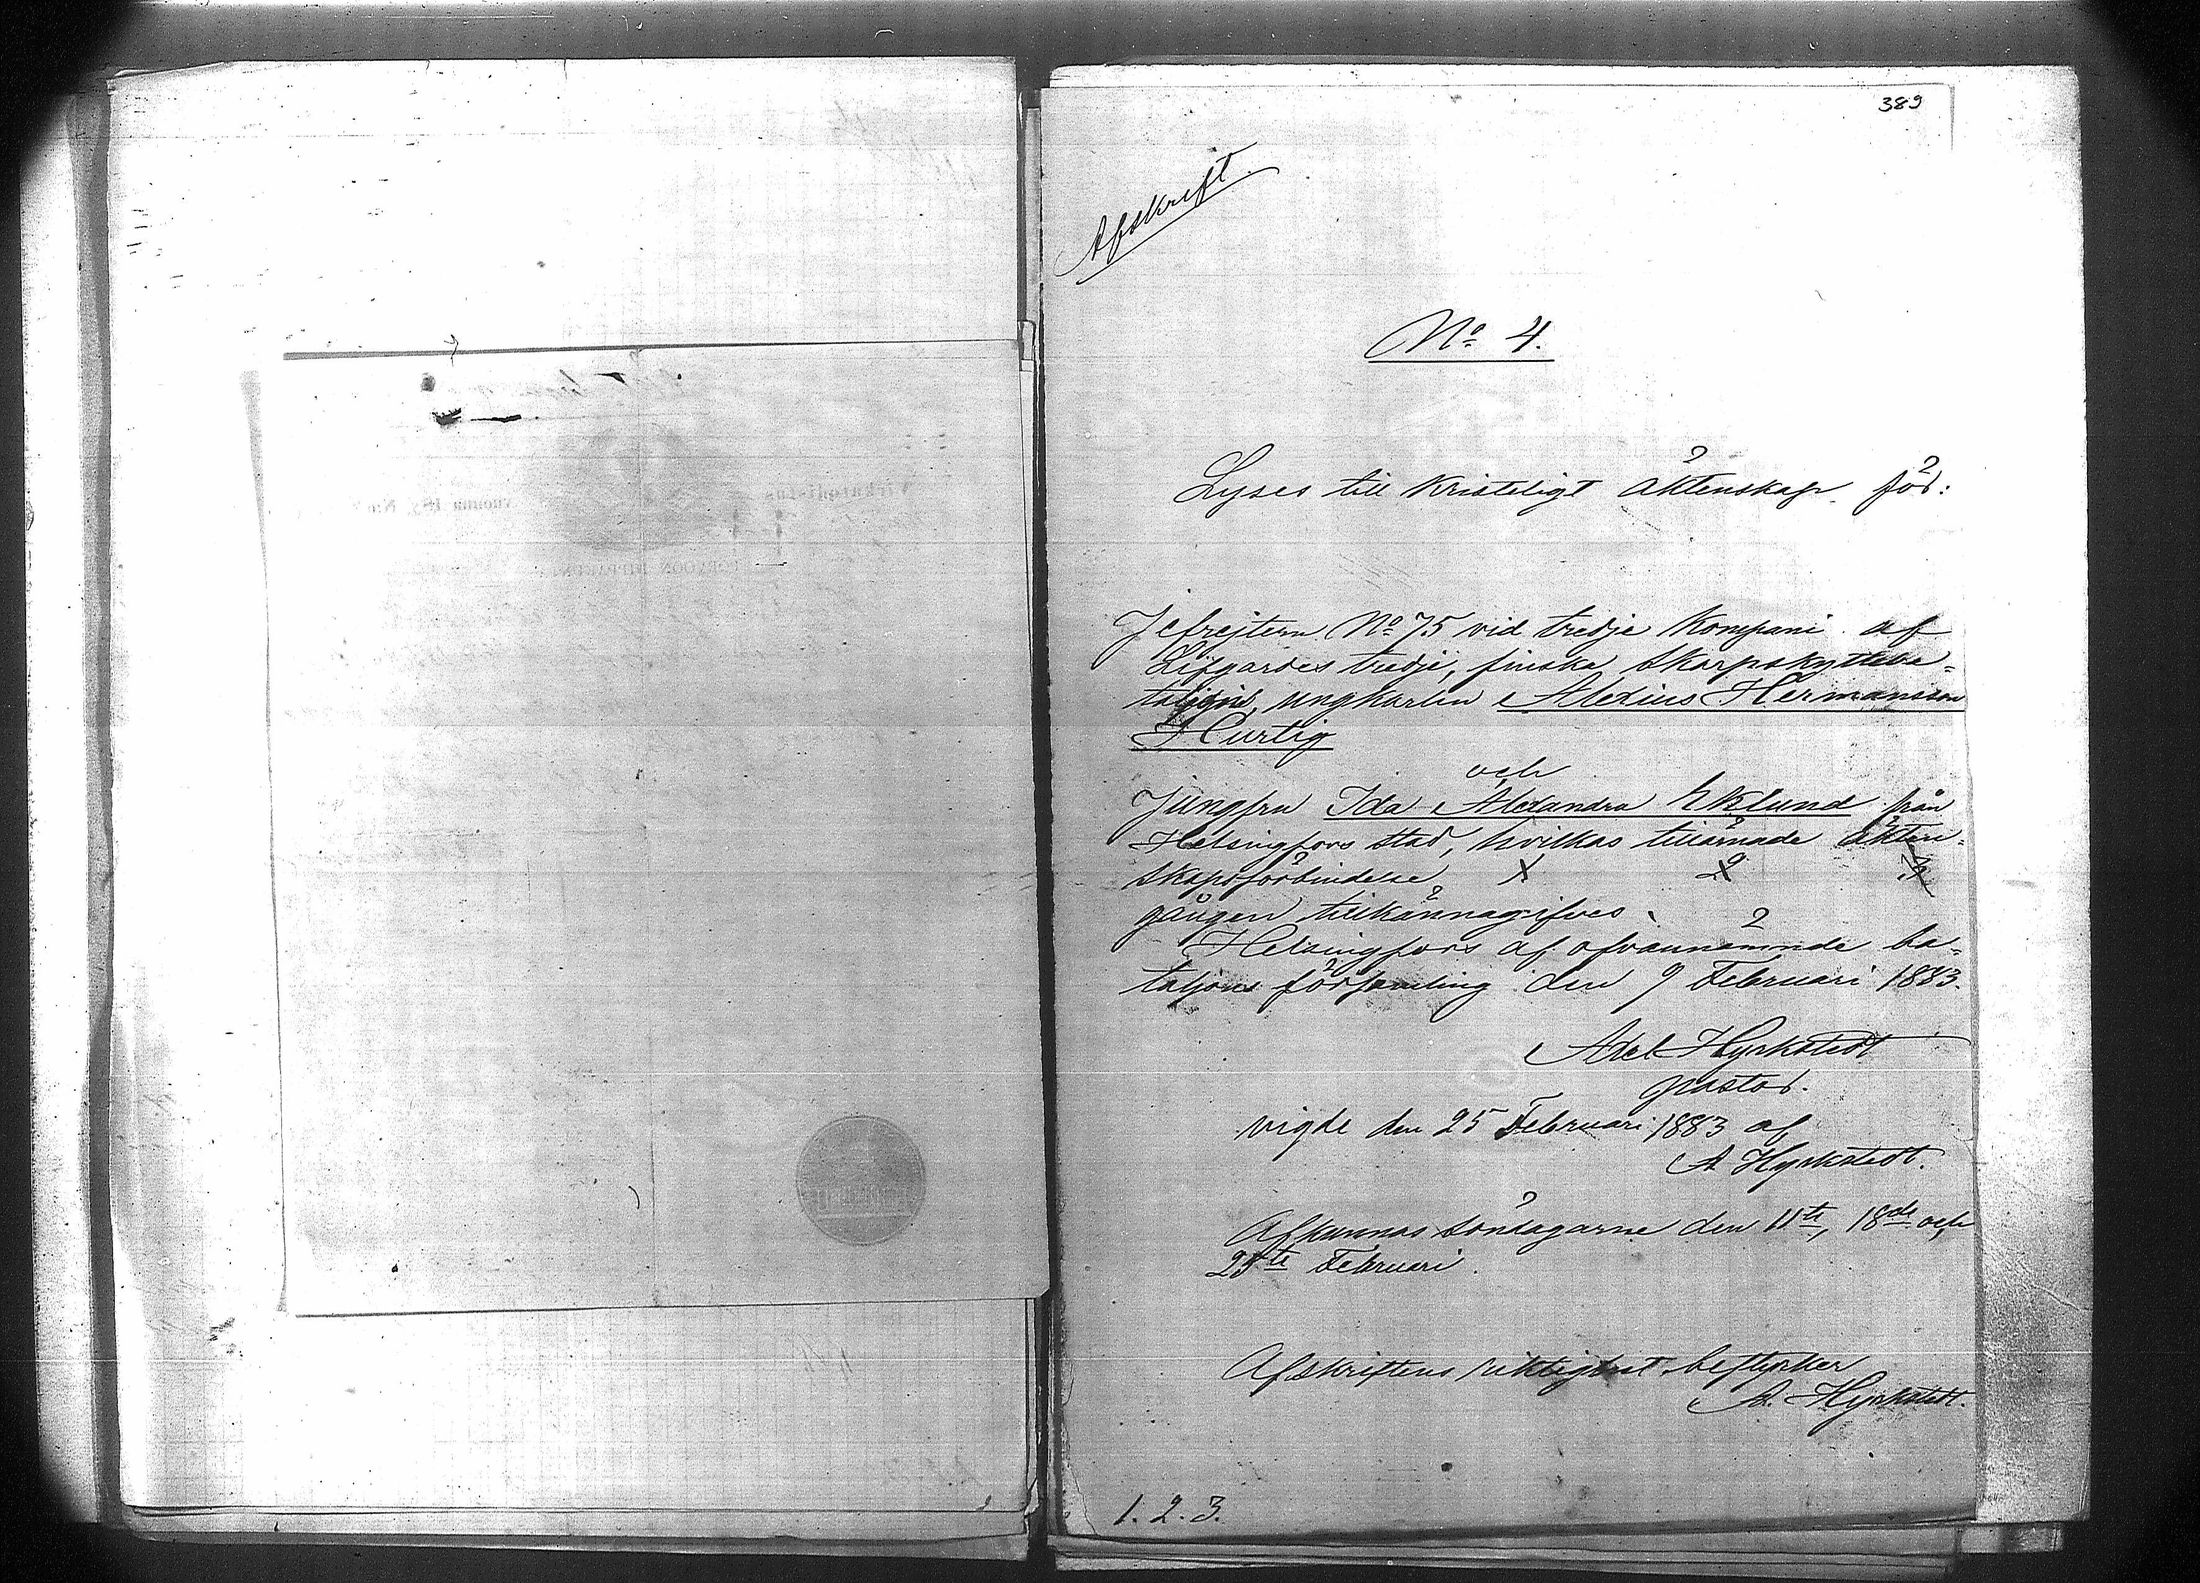 389
Afskrift.
No 4.
Lyses till kristeligt äktenskap för:
Jefrejtern No 75 vid tredje kompani af
Lifgardes tredje, finska skarpskytteba=
taljon, ungkarlen Alexius Hermansson
Hurtig
och
Jungfru Ida Alexandra Eklund från
Helsingfors stad, hvilkas tillärnade äkten=
skapsförbindelse 1 2 3
gången tillkännagifves.
Helsingfors af ofvannämnde ba=
taljons församling den 9 Februari 1883.
Axel Hyrkstedt
pastor.
vigde den 25 Februari 1883 af
A Hyrkstedt.
Afkunnas söndagarne den 11te, 18de och
25te Februari.
Afskriftens riktighet bestyrker
A. Hyrkstedt.
1. 2. 3.